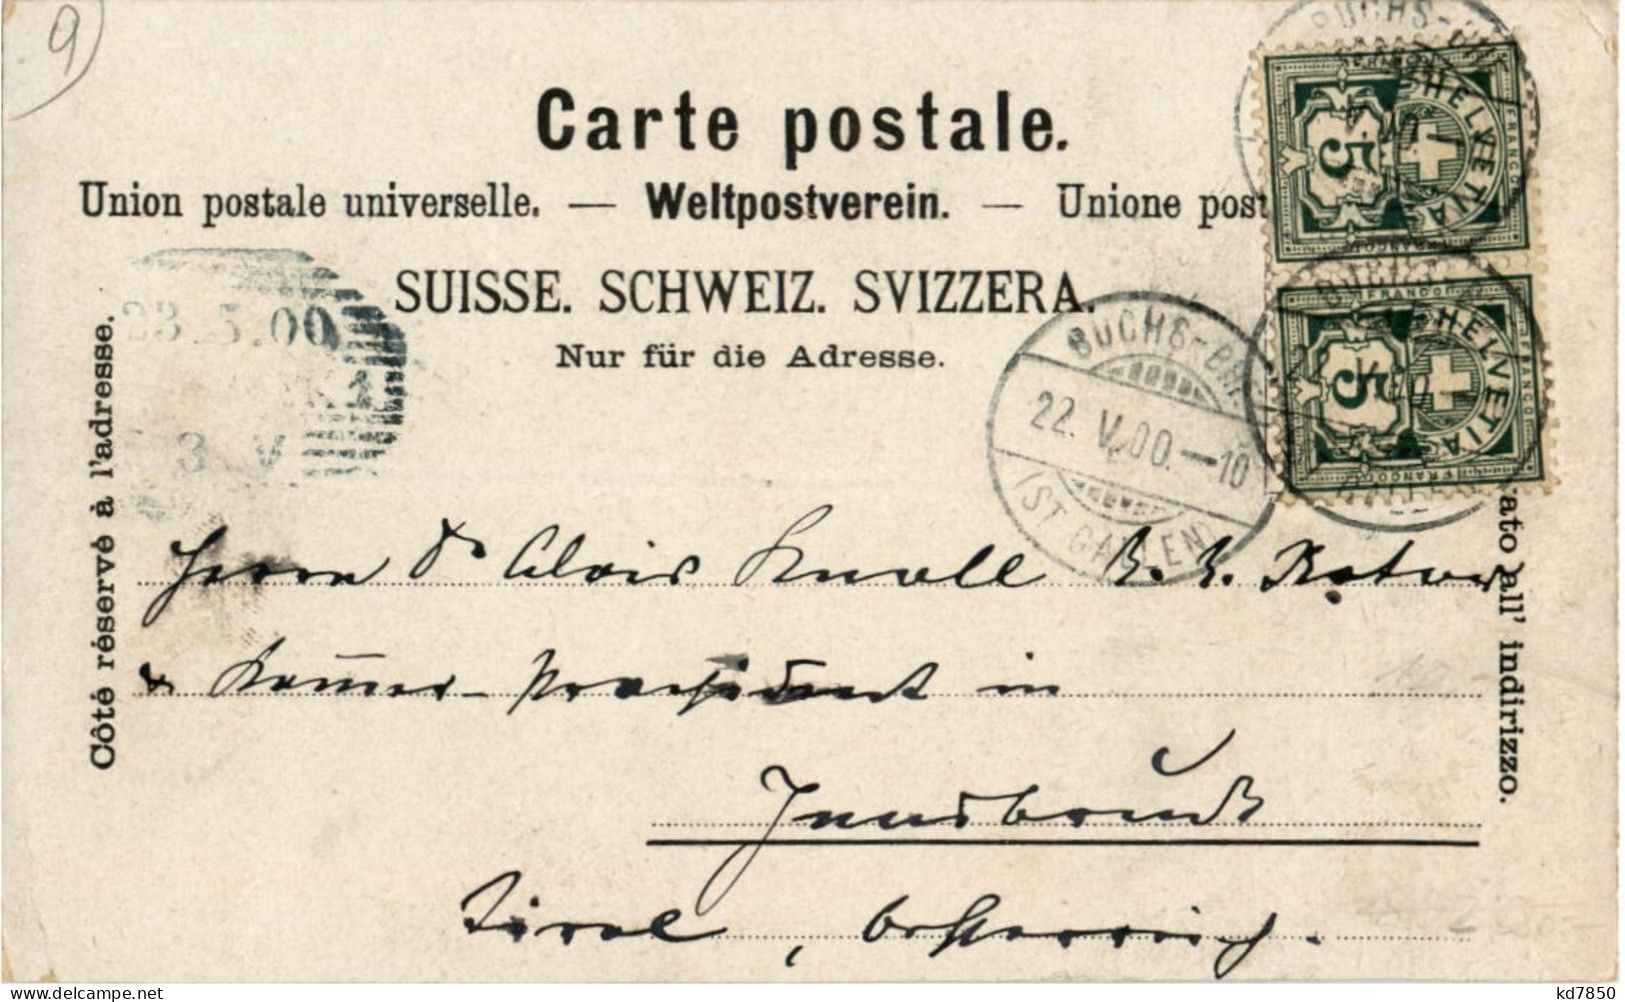 9
Carte postale.
Union postale universelle. — Weltpostverein. — Unione post
SUISSE. SCHWEIZ. SVIZZERA.
Nur für die Adresse.
Côté réservé à l'adresse.
rato all' indirizzo.
23.5.00
3 V
BUCHS-BH
22.V.00.—10
(ST. GALLEN)
FRANCO
HELVETIA
5
FRANCO
HELVETIA
5
Herrn Dr Alois Knoll K. K. Notar
& Kammer-Präsident in
Innsbruck
Tirol, Oesterreich.
kd7850